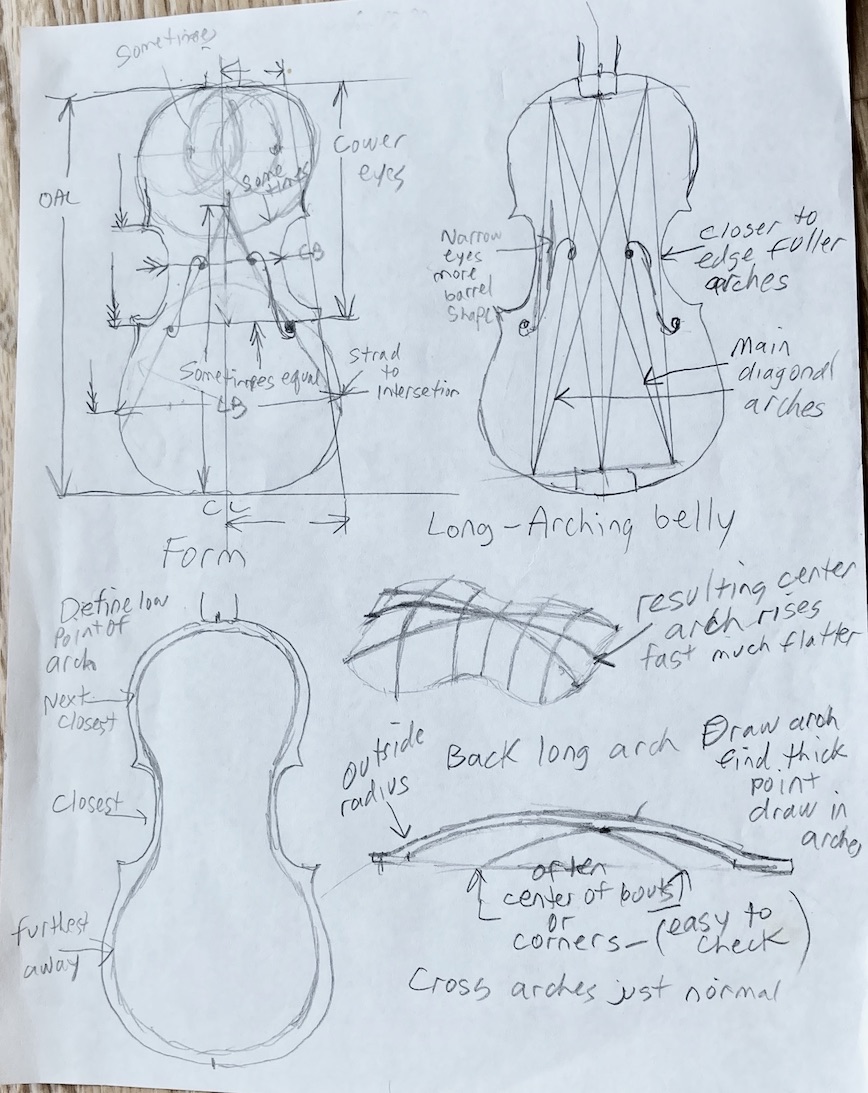 Sometimes
Cower
eyes
OAL
some
times
CB
Sometimes equal
LB
strad
to
Intersetion
CL
Form
Narrow
eyes
more
barrel
Shape
closer to
edge fuller
arches
Main
diagonal
arches
Long-Arching belly
Define low
Point of
arch
Next
closest
Closest
furthest
away
resulting center
arch rises
fast much flatter
Back long arch
outside
radius
Draw arch
find thick
point
draw in
arches
often
center of bouts
or
corners-(easy to
check)
Cross arches just normal